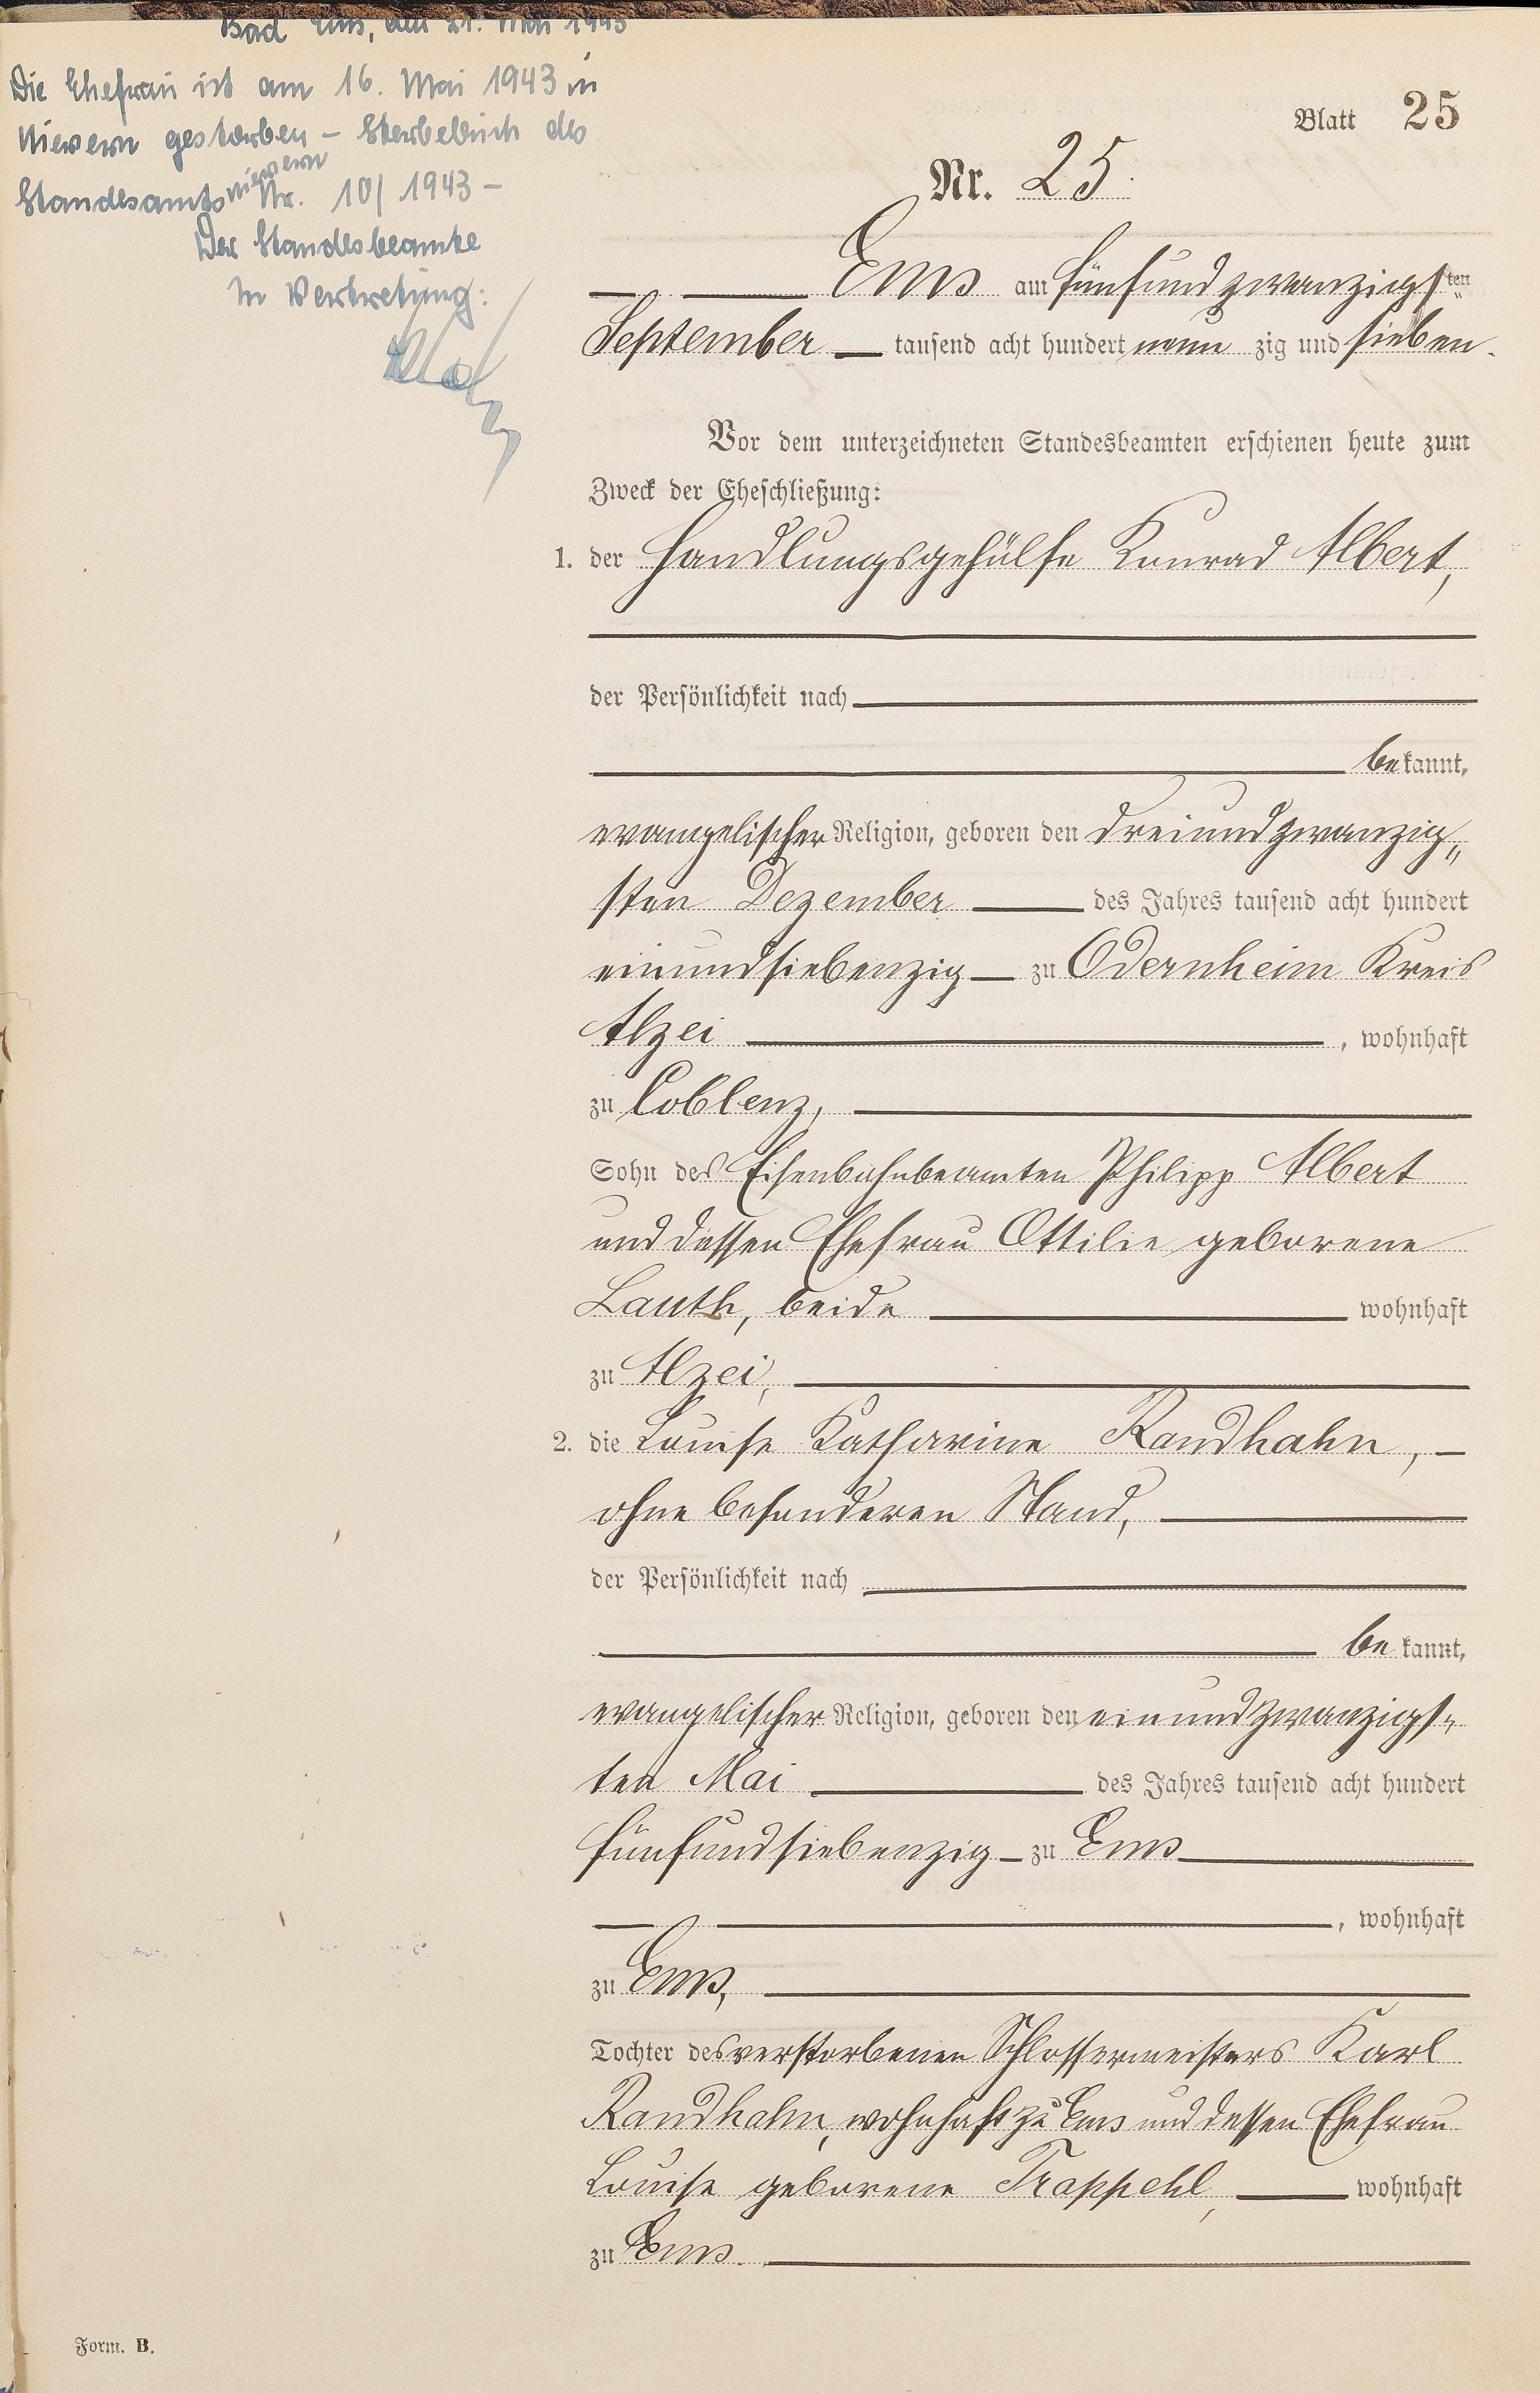 Bad Ems, den 21. Mai 1943
Die Ehefrau ist am 16. Mai 1943 in
Nievern gestorben – Sterbebuch des
Standesamts Nievern Nr. 10/1943 –
Der Standesbeamte
In Vertretung:
Blatt 25
Nr. 25.
Ems am fünfundzwanzigsten
September tausend acht hundert neunzig und sieben.
Vor dem unterzeichneten Standesbeamten erschienen heute zum
Zweck der Eheschließung:
1. der Handlungsgehülfe Konrad Albert,
der Persönlichkeit nach
bekannt,
evangelischer Religion, geboren den dreiundzwanzig„
sten Dezember des Jahres tausend acht hundert
einundsiebenzig zu Odernheim Kreis
Alzei, wohnhaft
zu Coblenz,
Sohn des Eisenbahnbeamten Philipp Albert
und dessen Ehefrau Ottilie geborene
Lauth, beide wohnhaft
zu Alzei,
2. die Louise Katharine Randhahn,
ohne besonderen Stand,
der Persönlichkeit nach
bekannt,
evangelischer Religion, geboren den einundzwanzigs„
ten Mai des Jahres tausend acht hundert
fünfundsiebenzig zu Ems
, wohnhaft
zu Ems,
Tochter des verstorbenen Schlossermeisters Karl
Randhahn, wohnhaft zu Ems und dessen Ehefrau
Louise geborene Trappehl, wohnhaft
zu Ems.
Form. B.